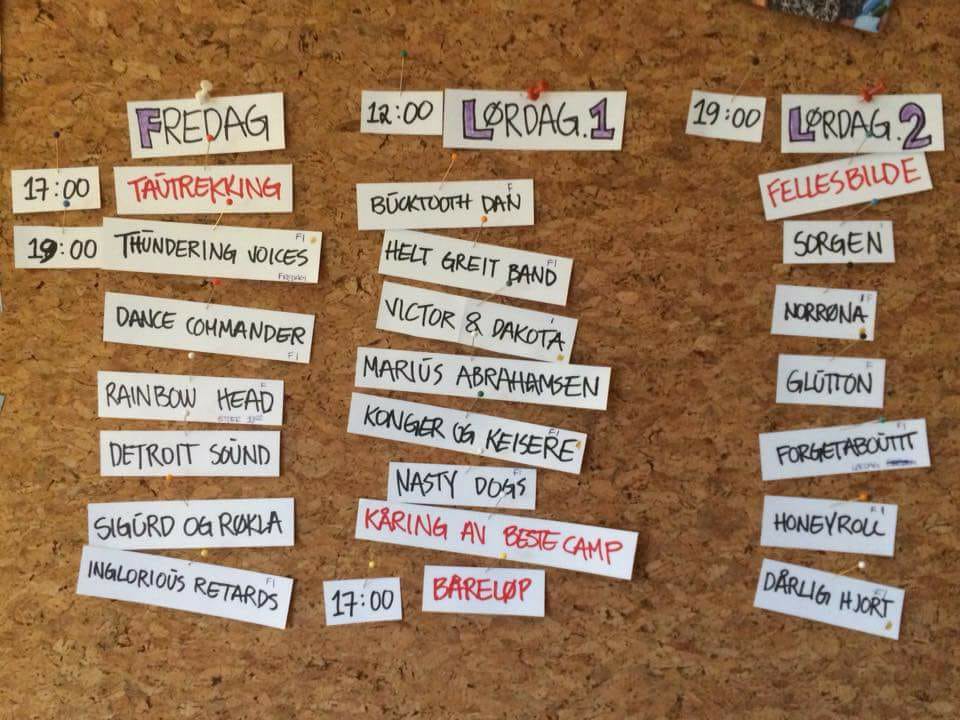 FREDAG
17:00 TAUTREKKING
19:00 THUNDERING VOICES FI
FREDAG
DANCE COMMANDER FI
RAINBOW HEAD F
DETROIT SOUND
SIGURD OG RØKLA
INGLORIOUS RETARDS FI
12:00 LØRDAG.1
BUCKTOOTH DAN F
HELT GREIT BAND FI
VICTOR & DAKOTA F
MARIUS ABRAHAMSEN
KONGER OG KEISERE FI
NASTY DOGS FI
KÅRING AV BESTE CAMP
17:00 BÅRELØP
19:00 LØRDAG.2
FELLESBILDE
SORGEN
NORRØNA F
GLUTTON
FORGETABOUTIT FI
LØRDAG
HONEYROLL FI
DÅRLIG HJORT FI